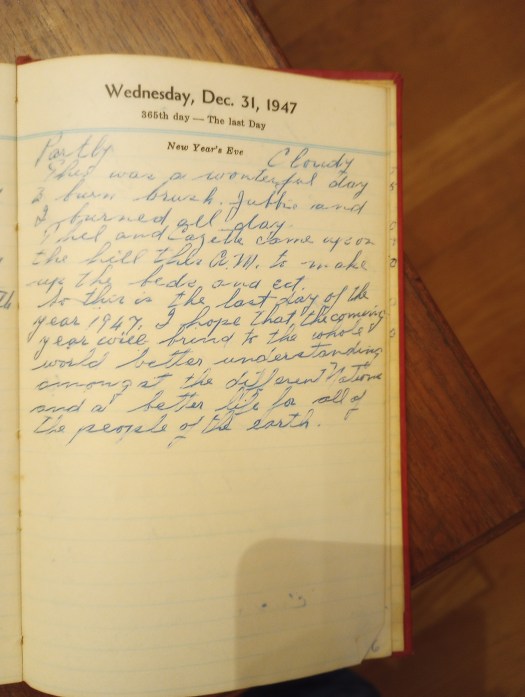 Wednesday, Dec. 31, 1947
365th day — The last Day
New Year's Eve
Partly Cloudy
This was a wonderful day
to burn brush. and
I burned all day.
and came up on
the hill this A.M. to make
up the beds and ect.
So this is the last day of the
year 1947. I hope that the coming
year will bring to the whole
world better understanding
amongst the different Nations
and a better life for all of
the people of the earth.